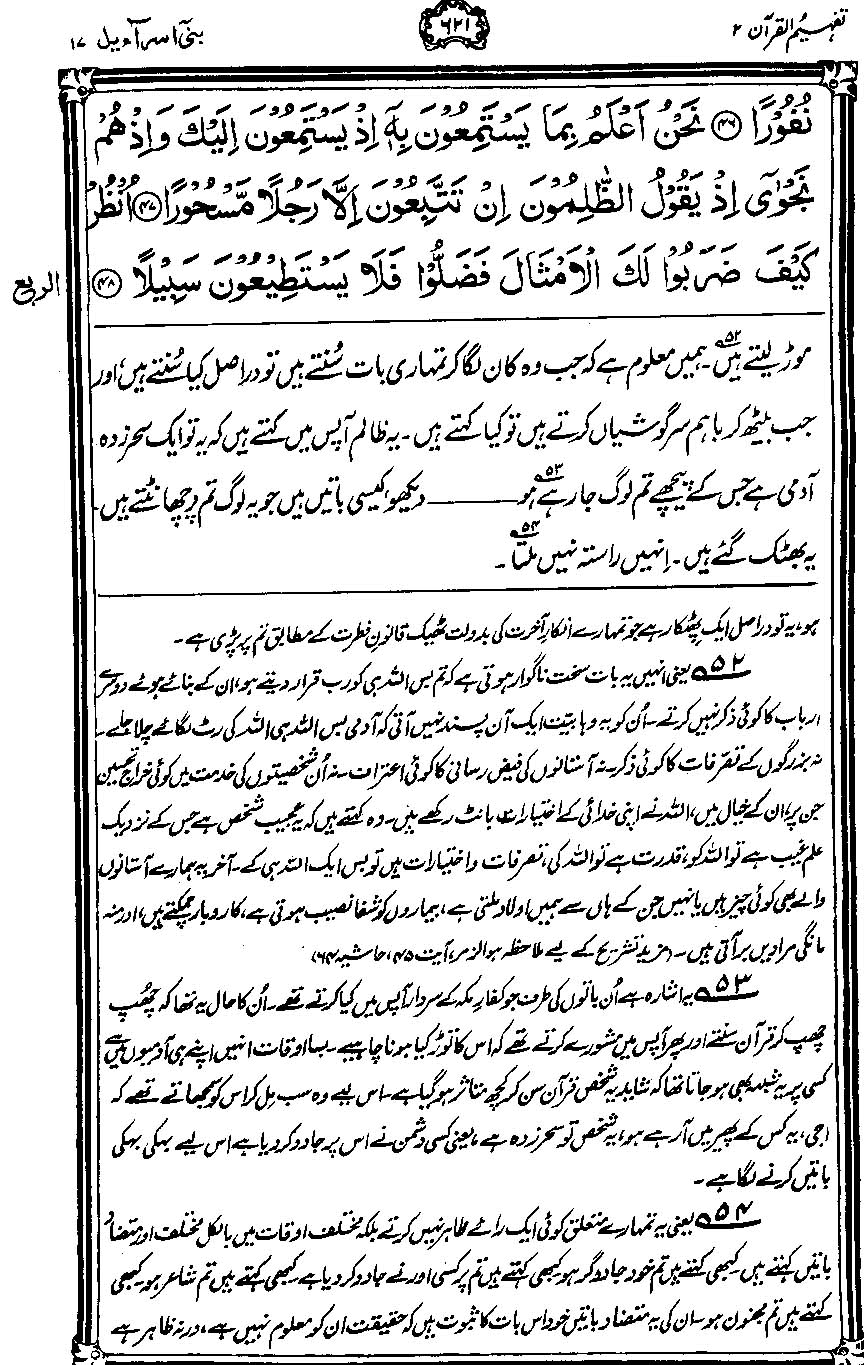 تفہیم القرآن ۲
۶۲۱
بنی اسرآءیل ۱۷
نُفُوْرًا ﴿۴۶﴾ نَحْنُ اَعْلَمُ بِمَا یَسْتَمِعُوْنَ بِهٖۤ اِذْ یَسْتَمِعُوْنَ اِلَیْكَ وَاِذْ هُمْ
نَجْوٰۤی اِذْ یَقُوْلُ الظّٰلِمُوْنَ اِنْ تَتَّبِعُوْنَ اِلَّا رَجُلًا مَّسْحُوْرًا ﴿۴۷﴾ اُنْظُرْ
كَیْفَ ضَرَبُوْا لَكَ الْاَمْثَالَ فَضَلُّوْا فَلَا یَسْتَطِیْعُوْنَ سَبِیْلًا ﴿۴۸﴾
الربع
موڑ لیتے ہیں۵۲۔ ہمیں معلوم ہے کہ جب وہ کان لگا کر تمہاری بات سُنتے ہیں تو دراصل کیا سُنتے ہیں، اور
جب بیٹھ کر باہم سرگوشیاں کرتے ہیں تو کیا کہتے ہیں۔ یہ ظالم آپس میں کہتے ہیں کہ یہ تو ایک سحر زدہ
آدمی ہے جس کے پیچھے تم لوگ جا رہے ہو۵۳ ــــــــ دیکھو، کیسی باتیں ہیں جو یہ لوگ تم پر چھانٹتے ہیں۔
یہ بھٹک گئے ہیں۔ اِنہیں راستہ نہیں ملتا۵۴۔
ہو، یہ تو دراصل ایک پھٹکار ہے جو تمہارے انکارِ آخرت کی بدولت ٹھیک قانونِ فطرت کے مطابق تم پر پڑی ہے۔
۵۲ یعنی انہیں یہ بات سخت ناگوار ہوتی ہے کہ تم بس اللہ ہی کو رب قرار دیتے ہو، ان کے بنائے ہوئے دوسرے
ارباب کا کوئی ذکر نہیں کرتے۔ اُن کو یہ وہابیّت ایک آن پسند نہیں آتی کہ آدمی بس اللہ ہی اللہ کی رٹ لگائے چلا جائے۔
نہ بزرگوں کے تصرّفات کا کوئی ذکر۔ نہ آستانوں کی فیض رسانی کا کوئی اعتراف۔ نہ اُن شخصیتوں کی خدمت میں کوئی خراجِ تحسین
جن پر، ان کے خیال میں، اللہ نے اپنی خدائی کے اختیارات بانٹ رکھے ہیں۔ وہ کہتے ہیں کہ یہ عجیب شخص ہے جس کے نزدیک
علمِ غیب ہے تو اللہ کو، قدرت ہے تو اللہ کی، تصرفات و اختیارات ہیں تو بس ایک اللہ ہی کے۔ آخر یہ ہمارے آستانوں
والے بھی کوئی چیز ہیں یا نہیں جن کے ہاں سے ہمیں اولاد ملتی ہے، بیماروں کو شفا نصیب ہوتی ہے، کاروبار چمکتے ہیں، اور منہ
مانگی مرادیں بر آتی ہیں۔ (مزید تشریح کے لیے ملاحظہ ہو الزمر، آیت ۴۵، حاشیہ ۶۴)
۵۳ یہ اشارہ ہے اُن باتوں کی طرف جو کفارِ مکہ کے سردار آپس میں کیا کرتے تھے۔ اُن کا حال یہ تھا کہ چُھپ
چُھپ کر قرآن سنتے اور پھر آپس میں مشورے کرتے تھے کہ اس کا توڑ کیا ہونا چاہیے۔ بسا اوقات انہیں اپنے ہی آدمیوں میں سے
کسی پر یہ شبہ بھی ہو جاتا تھا کہ شاید یہ شخص قرآن سن کر کچھ متاثر ہو گیا ہے۔ اس لیے وہ سب مل کر اس کو سمجھاتے تھے کہ
اجی، یہ کس کے پھیر میں آ رہے ہو، یہ شخص تو سحر زدہ ہے، یعنی کسی دشمن نے اس پر جادو کر دیا ہے اس لیے بہکی بہکی
باتیں کرنے لگا ہے۔
۵۴ یعنی یہ تمہارے متعلق کوئی ایک رائے ظاہر نہیں کرتے بلکہ مختلف اوقات میں بالکل مختلف اور متضاد
باتیں کہتے ہیں۔ کبھی کہتے ہیں تم خود جادوگر ہو۔ کبھی کہتے ہیں تم پر کسی اور نے جادو کر دیا ہے۔ کبھی کہتے ہیں تم شاعر ہو۔ کبھی
کہتے ہیں تم مجنون ہو۔ ان کی یہ متضاد باتیں خود اس بات کا ثبوت ہیں کہ حقیقت ان کو معلوم نہیں ہے، ورنہ ظاہر ہے